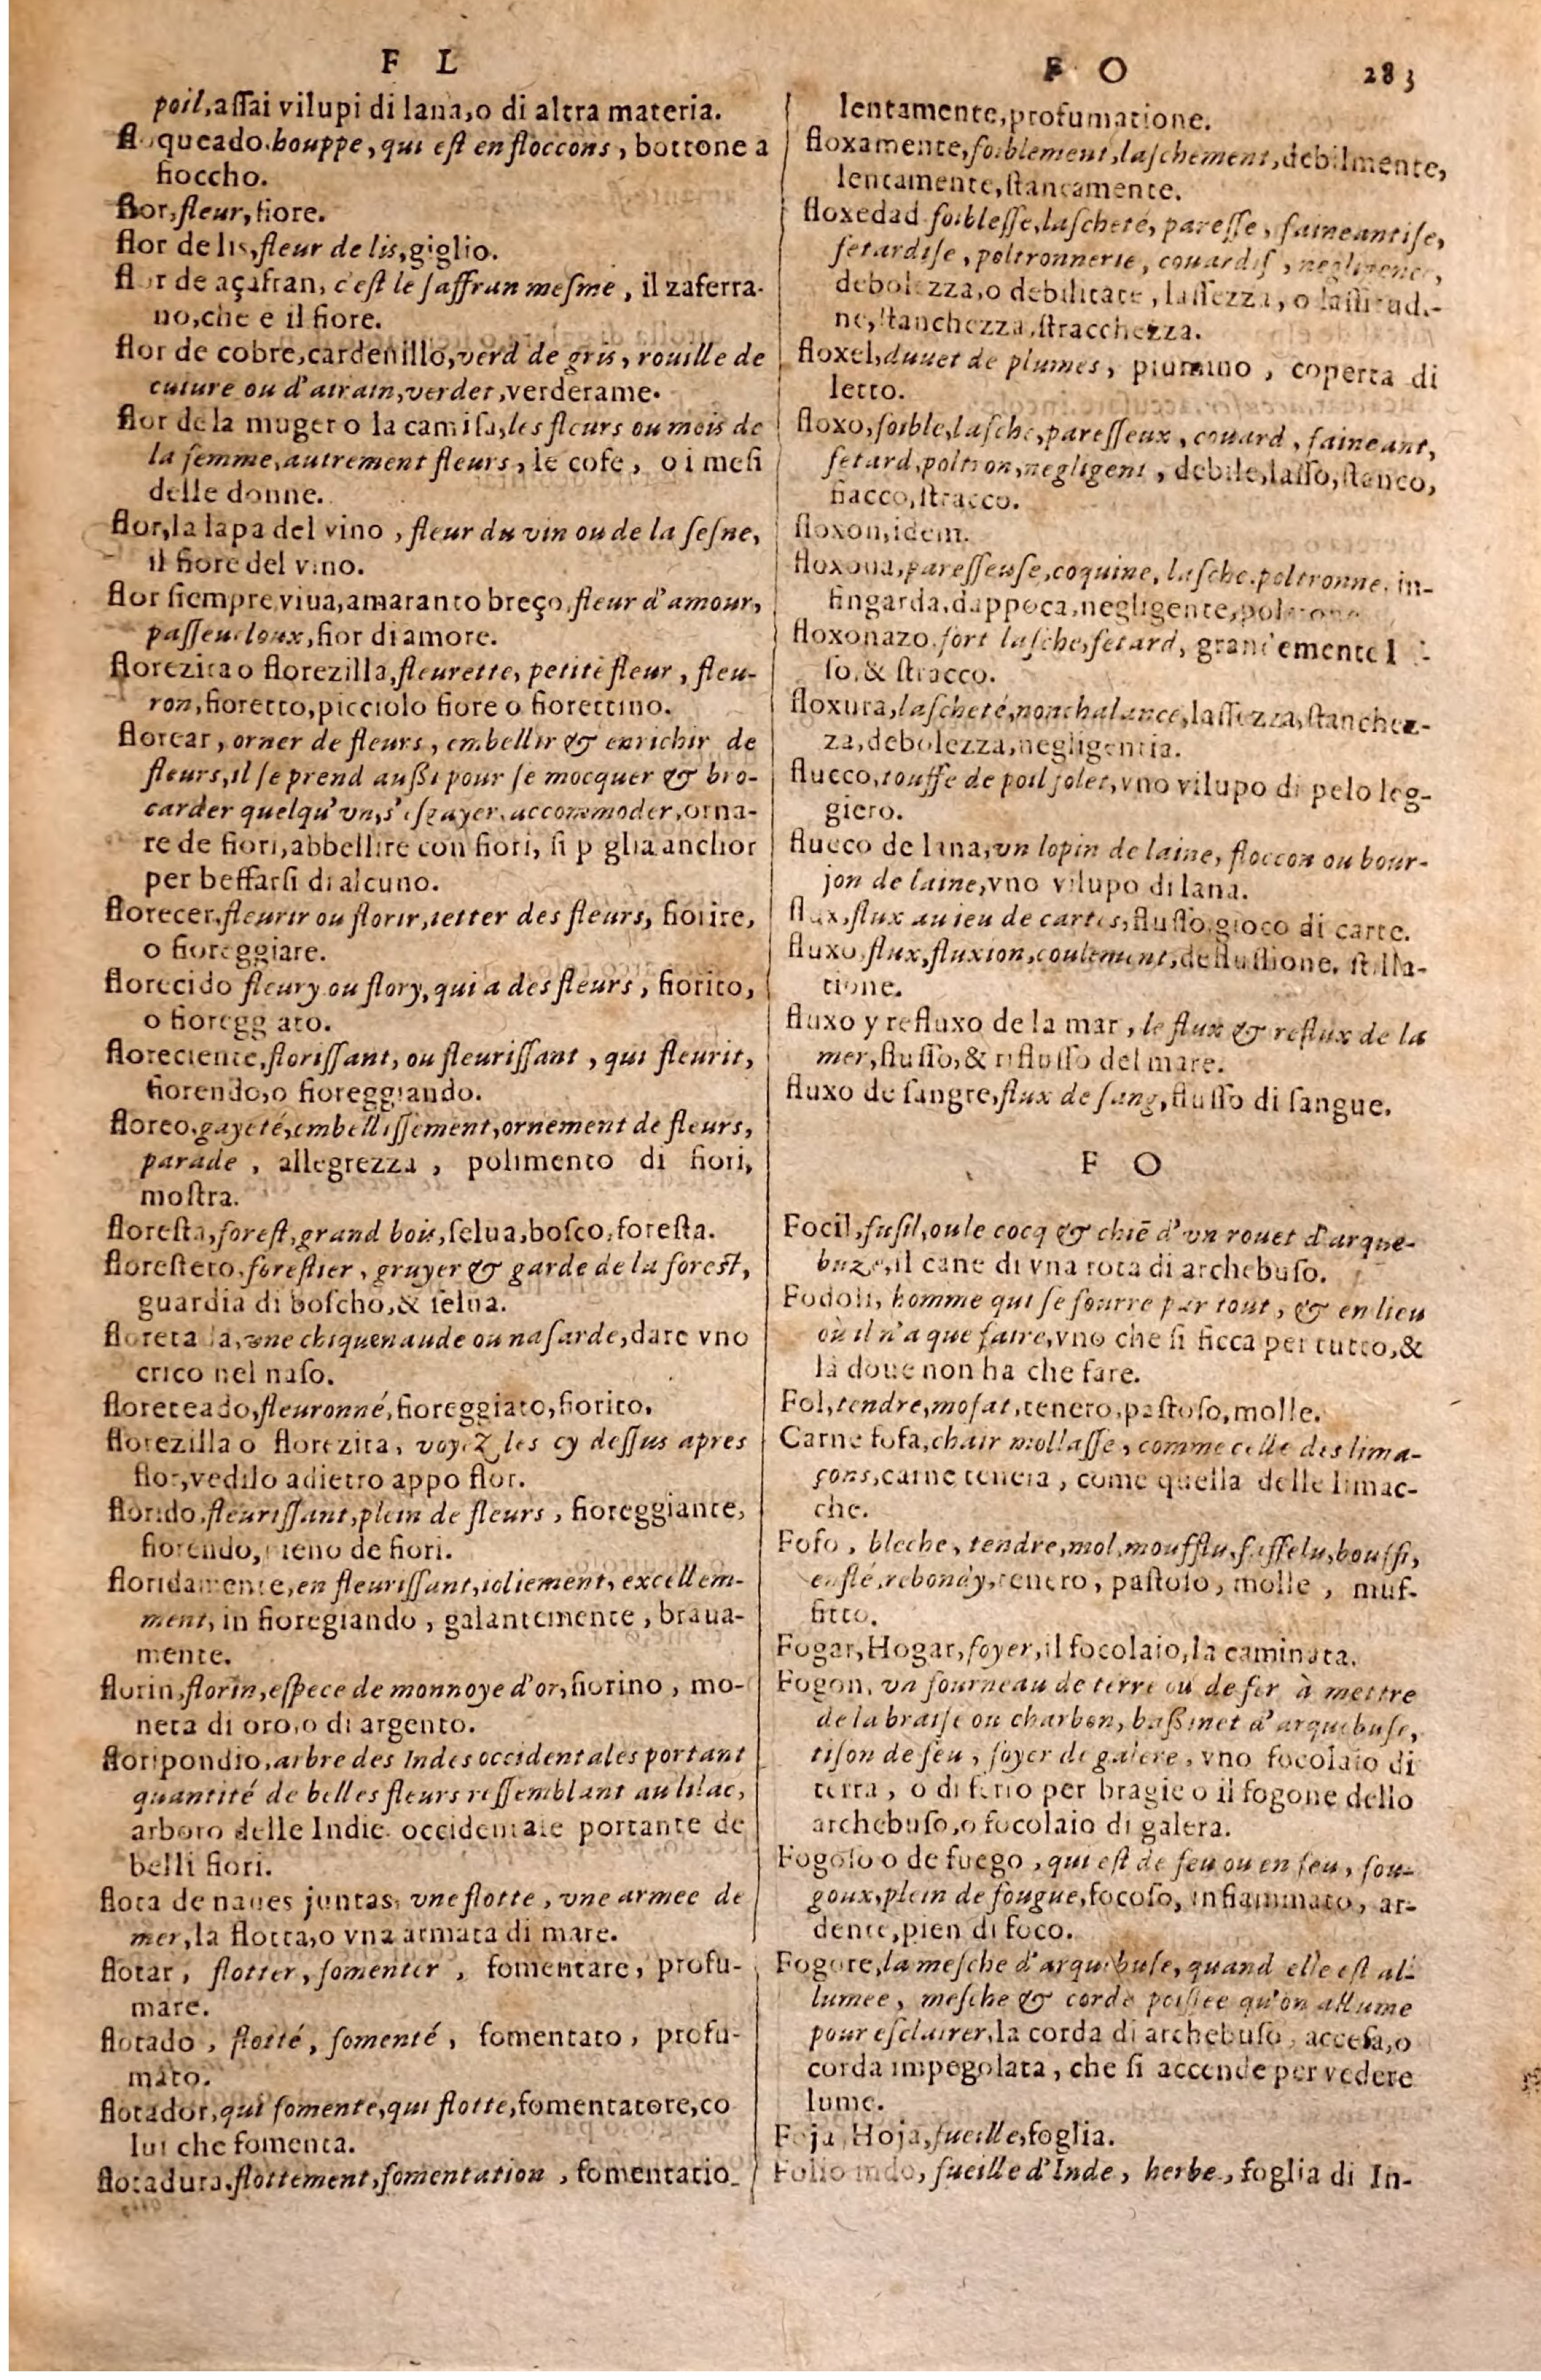 F L
poil, aſſai vilupi di lana, o di altra materia.
floqueado. houppe, qui eſt en floccons, bottone a
fioccho.
flor, fleur, fiore.
flor de lis, fleur de lis, giglio.
flor de açafran, c'eſt le ſaffran meſme, il zaferra-
no, che e il fiore.
flor de cobre, cardenillo, verd de gris, rouille de
cuiure ou d'airain, verdet, verderame.
flor de la muger o la camiſa, les fleurs ou mois de
la femme, autrement fleurs, le coſe, o i meſi
delle donne.
flor, la lapa del vino, fleur du vin ou de la ſeſne,
il fiore del vino.
flor ſiempre viua, amaranto breço, fleur d'amour,
paſſeueloux, fior di amore.
florezita o florezilla, fleurette, petite fleur, fleu-
ron, fioretto, picciolo fiore o fiorettino.
florear, orner de fleurs, embellir & enrichir de
fleurs, il ſe prend außi pour ſe mocquer & bro-
carder quelqu'vn, s'eſgayer, accommoder, orna-
re de fiori, abbellire con fiori, ſi p glia anchor
per beffarſi di alcuno.
florecer, fleurir ou florir, ietter des fleurs, fiorire,
o fioreggiare.
florecido fleury ou flory, qui a des fleurs, fiorito,
o fioregg ato.
floreciente, floriſſant, ou fleuriſſant, qui fleurit,
fiorendo, o fioreggiando.
floreo, gayeté, embelliſſement, ornement de fleurs,
parade, allegrezza, polimento di fiori,
moſtra.
floreſta, foreſt, grand bois, ſelua, boſco, foreſta.
floreſtero, foreſtier, gruyer & garde de la foreſt,
guardia di boſcho, & ſelua.
floreta da, vne chiquenaude ou naſarde, dare vno
crico nel naſo.
floreteado, fleuronné, fioreggiato, fiorito.
florezilla o florezita, voyez les cy deſſus apres
flor, vedilo adietro appo flor.
florido, fleuriſſant, plein de fleurs, fioreggiante,
fiorendo, pieno de fiori.
floridamente, en fleuriſſant, ioliement, excellem-
ment, in fioregiando, galantemente, braua-
mente.
florin, florin, eſpece de monnoye d'or, fiorino, mo-
neta di oro, o di argento.
floripondio, arbre des Indes occidentales portant
quantité de belles fleurs reſſemblant au lilac,
arboro delle Indie occidentale portante de
belli fiori.
flota de naues juntas, vne flotte, vne armee de
mer, la flotta, o vna armata di mare.
flotar, flotter, fomenter, fomentare, profu-
mare.
flotado, flotté, fomenté, fomentato, profu-
mato.
flotador, qui fomente, qui flotte, fomentatore, co
lui che fomenta.
flotadura, flottement, fomentation, fomentatio-
F O 283
lentamente, profumatione.
floxamente, foiblement, laſchement, debilmente,
lentamente, ſtancamente.
floxedad foibleſſe, laſcheté, pareſſe, faineantiſe,
fetardiſe, poltronnerie, couardiſ, negligence,
debolezza, o debilitate, laſſezza, o laſſitudi-
ne, ſtanchezza, ſtracchezza.
floxel, duuet de plumes, piumino, coperta di
letto.
floxo, foible, laſche, pareſſeux, couard, faineant,
fetard, poltron, negligent, debile, laſſo, ſtanco,
fiacco, ſtracco.
floxon, idem.
floxona, pareſſeuſe, coquine, laſche, poltronne, in-
fingarda, dappoca, negligente, poltrone
floxonazo, fort laſche, fetard, grandemente l
ſo, & ſtracco.
floxura, laſcheté, nonchalance, laſſezza, ſtanchez-
za, debolezza, negligentia.
flueco, touffe de poil folet, vno vilupo di pelo leg-
giero.
flueco de lana, vn lopin de laine, floccon ou bour-
jon de laine, vno vilupo di lana.
flux, flux au ieu de cartes, fluſſo, gioco di carte.
fluxo, flux, fluxion, coulement, defluſſione, ſtilla-
tione.
fluxo y refluxo de la mar, le flux & reflux de la
mer, fluſſo, & rifluſſo del mare.
fluxo de ſangre, flux de ſang, fluſſo di ſangue.
F O
Focil, fuſil, ou le cocq & chiē d'vn rouet d'arque-
buze, il cane di vna rota di archebuſo.
Fodoli, homme qui ſe fourre par tout, & en lieu
où il n'a que faire, vno che ſi ficca per tutto, &
là doue non ha che fare.
Fol, tendre, mofat, tenero, paſtoſo, molle.
Carne fofa, chair mollaſſe, comme celle des lima-
çons, carne tenera, come quella delle limac-
che.
Fofo, bleche, tendre, mol, moufflu, faffelu, bouffi,
enflé, rebondy, tenero, paſtoſo, molle, muf-
fitto.
Fogar, Hogar, foyer, il focolaio, la caminata.
Fogon, vn fourneau de terre ou de fer à mettre
de la braiſe ou charbon, baßinet d'arquebuſe,
tiſon de feu, foyer de galere, vno focolaio di
terra, o di ferro per bragie o il fogone dello
archebuſo, o focolaio di galera.
Fogoſo o de fuego, qui eſt de feu ou en feu, fou-
goux, plein de fougue, focoſo, infiammato, ar-
dente, pien di foco.
Fogote, la meſche d'arquebuſe, quand elle eſt al-
lumee, meſche & corde poiſſee qu'on allume
pour eſclairer, la corda di archebuſo, acceſa, o
corda impegolata, che ſi accende per vedere
lume.
Foja, Hoja, fueille, foglia.
Folio indo, fueille d'Inde, herbe, foglia di In-